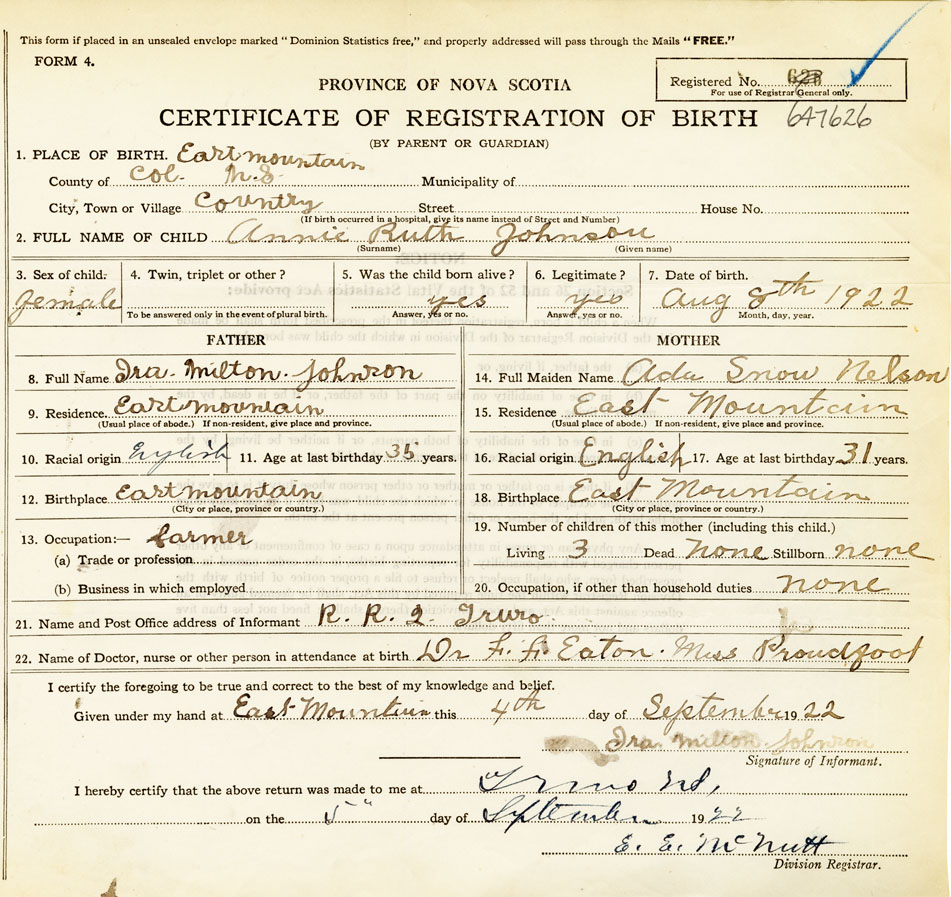 This form if placed in an unsealed envelope marked "Dominion Statistics free," and properly addressed will pass through the Mails "FREE."
FORM 4.
PROVINCE OF NOVA SCOTIA
Registered No. 626
For use of Registrar General only.
CERTIFICATE OF REGISTRATION OF BIRTH 647626
(BY PARENT OR GUARDIAN)
1. PLACE OF BIRTH. East mountain
County of Col. N.S. Municipality of
City, Town or Village Country Street House No.
(If birth occurred in a hospital, give its name instead of Street and Number)
2. FULL NAME OF CHILD Annie Ruth Johnson
(Surname) (Given name)
3. Sex of child. 4. Twin, triplet or other? 5. Was the child born alive? 6. Legitimate? 7. Date of birth.
female yes yes Aug 8th 1922
To be answered only in the event of plural birth. Answer, yes or no. Answer, yes or no. Month, day, year.
FATHER MOTHER
8. Full Name Ira Milton Johnson 14. Full Maiden Name Ada Snow Nelson
9. Residence East mountain 15. Residence East Mountain
(Usual place of abode.) If non-resident, give place and province. (Usual place of abode.) If non-resident, give place and province.
10. Racial origin English 11. Age at last birthday 35 years. 16. Racial origin English 17. Age at last birthday 31 years.
12. Birthplace East mountain 18. Birthplace East Mountain
(City or place, province or country.) (City or place, province or country.)
13. Occupation:— farmer 19. Number of children of this mother (including this child.)
(a) Trade or profession Living 3 Dead none Stillborn none
(b) Business in which employed 20. Occupation, if other than household duties none
21. Name and Post Office address of Informant R. R. 2. Truro.
22. Name of Doctor, nurse or other person in attendance at birth Dr F. F. Eaton. Miss Proudfoot
I certify the foregoing to be true and correct to the best of my knowledge and belief.
Given under my hand at East Mountain this 4th day of September 1922
Ira Milton Johnson
Signature of Informant.
I hereby certify that the above return was made to me at Truro NS,
on the 5" day of September 1922
E. E. McNutt
Division Registrar.